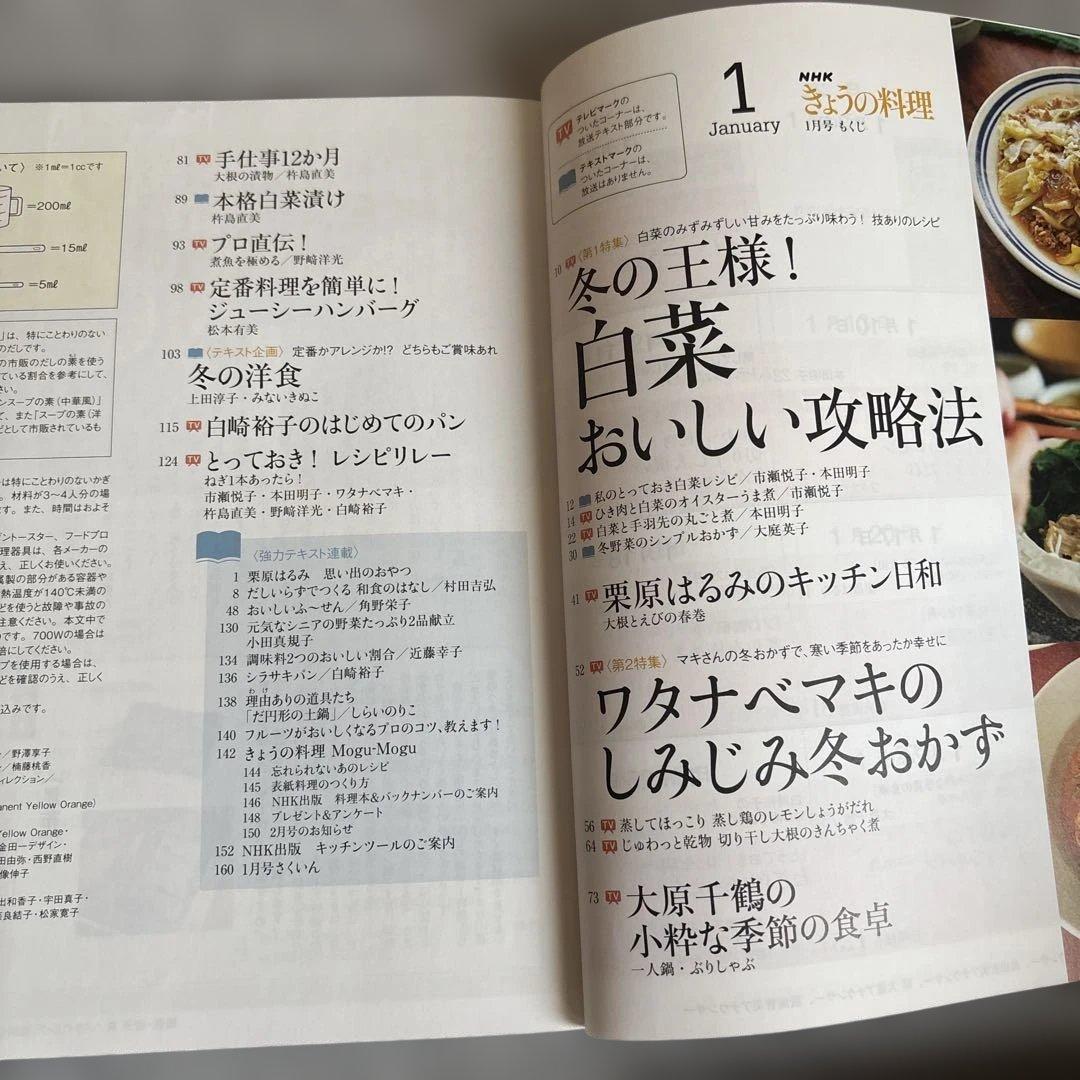 いて〉 ※1mℓ＝1ccです
＝200mℓ
＝15mℓ
＝5mℓ
」は、特にことわりのない
のだしです。
の市販のだしの素を使う
ている割合を参考にして、
さい。
ンスープの素（中華風）」
て、また「スープの素（洋
どとして市販されているも
ーは特にことわりのないかぎ
。材料が3〜4人分の場
ます。また、時間はおよそ
ブントースター、フードプロ
理器具は、各メーカーの
え、正しくお使いください。
属製の部分がある容器や
熱温度が140℃未満の
どを使うと故障や事故の
注意ください。本文中で
のです。700Wの場合は
倍にしてください。
プを使用する場合は、
どを確認のうえ、正しく
込みです。
／野澤享子
／楠藤桃香
ィレクション／
anent Yellow Orange）
Yellow Orange・
金田一デザイン・
田由弥・西野直樹
像伸子
出和香子・宇田真子・
奈良結子・松家寛子
81 TV 手仕事12か月
大根の漬物／杵島直美
89 本格白菜漬け
杵島直美
93 TV プロ直伝！
煮魚を極める／野﨑洋光
98 TV 定番料理を簡単に！
ジューシーハンバーグ
松本有美
103 〈テキスト企画〉 定番かアレンジか!? どちらもご賞味あれ
冬の洋食
上田淳子・みないきぬこ
115 TV 白崎裕子のはじめてのパン
124 TV とっておき！ レシピリレー
ねぎ1本あったら！
市瀬悦子・本田明子・ワタナベマキ・
杵島直美・野﨑洋光・白崎裕子
〈強力テキスト連載〉
1 栗原はるみ 思い出のおやつ
8 だしいらずでつくる 和食のはなし／村田吉弘
48 おいしいふ〜せん／角野栄子
130 元気なシニアの野菜たっぷり2品献立
小田真規子
134 調味料2つのおいしい割合／近藤幸子
136 シラサキパン／白崎裕子
わけ
138 理由ありの道具たち
「だ円形の土鍋」／しらいのりこ
140 フルーツがおいしくなるプロのコツ、教えます！
142 きょうの料理 Mogu-Mogu
144 忘れられないあのレシピ
145 表紙料理のつくり方
146 NHK出版 料理本＆バックナンバーのご案内
148 プレゼント＆アンケート
150 2月号のお知らせ
152 NHK出版 キッチンツールのご案内
160 1月号さくいん
TV テレビマークの
ついたコーナーは、
放送テキスト部分です。
テキストマークの
ついたコーナーは、
放送はありません。
1
January
NHK
きょうの料理
1月号 もくじ
10 TV 〈第1特集〉 白菜のみずみずしい甘みをたっぷり味わう！ 技ありのレシピ
冬の王様！
白菜
おいしい攻略法
12 私のとっておき白菜レシピ／市瀬悦子・本田明子
14 TV ひき肉と白菜のオイスターうま煮／市瀬悦子
22 TV 白菜と手羽先の丸ごと煮／本田明子
30 冬野菜のシンプルおかず／大庭英子
41 TV 栗原はるみのキッチン日和
大根とえびの春巻
52 TV 〈第2特集〉 マキさんの冬おかずで、寒い季節をあったか幸せに
ワタナベマキの
しみじみ冬おかず
56 TV 蒸してほっこり 蒸し鶏のレモンしょうがだれ
64 TV じゅわっと乾物 切り干し大根のきんちゃく煮
73 TV 大原千鶴の
小粋な季節の食卓
一人鍋・ぶりしゃぶ